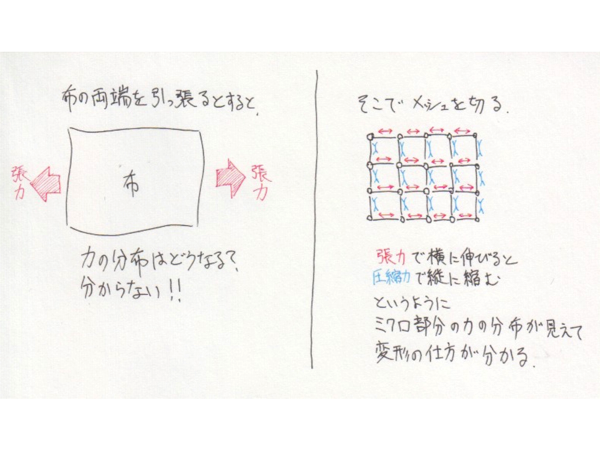 布の両端を引っ張るとすると、
張力
布
張力
力の分布はどうなる?
分からない!!
そこでメッシュを切る.
張力で横に伸びると
圧縮力で縦に縮む
というように
ミクロ部分の力の分布が見えて
変形の仕方が分かる.